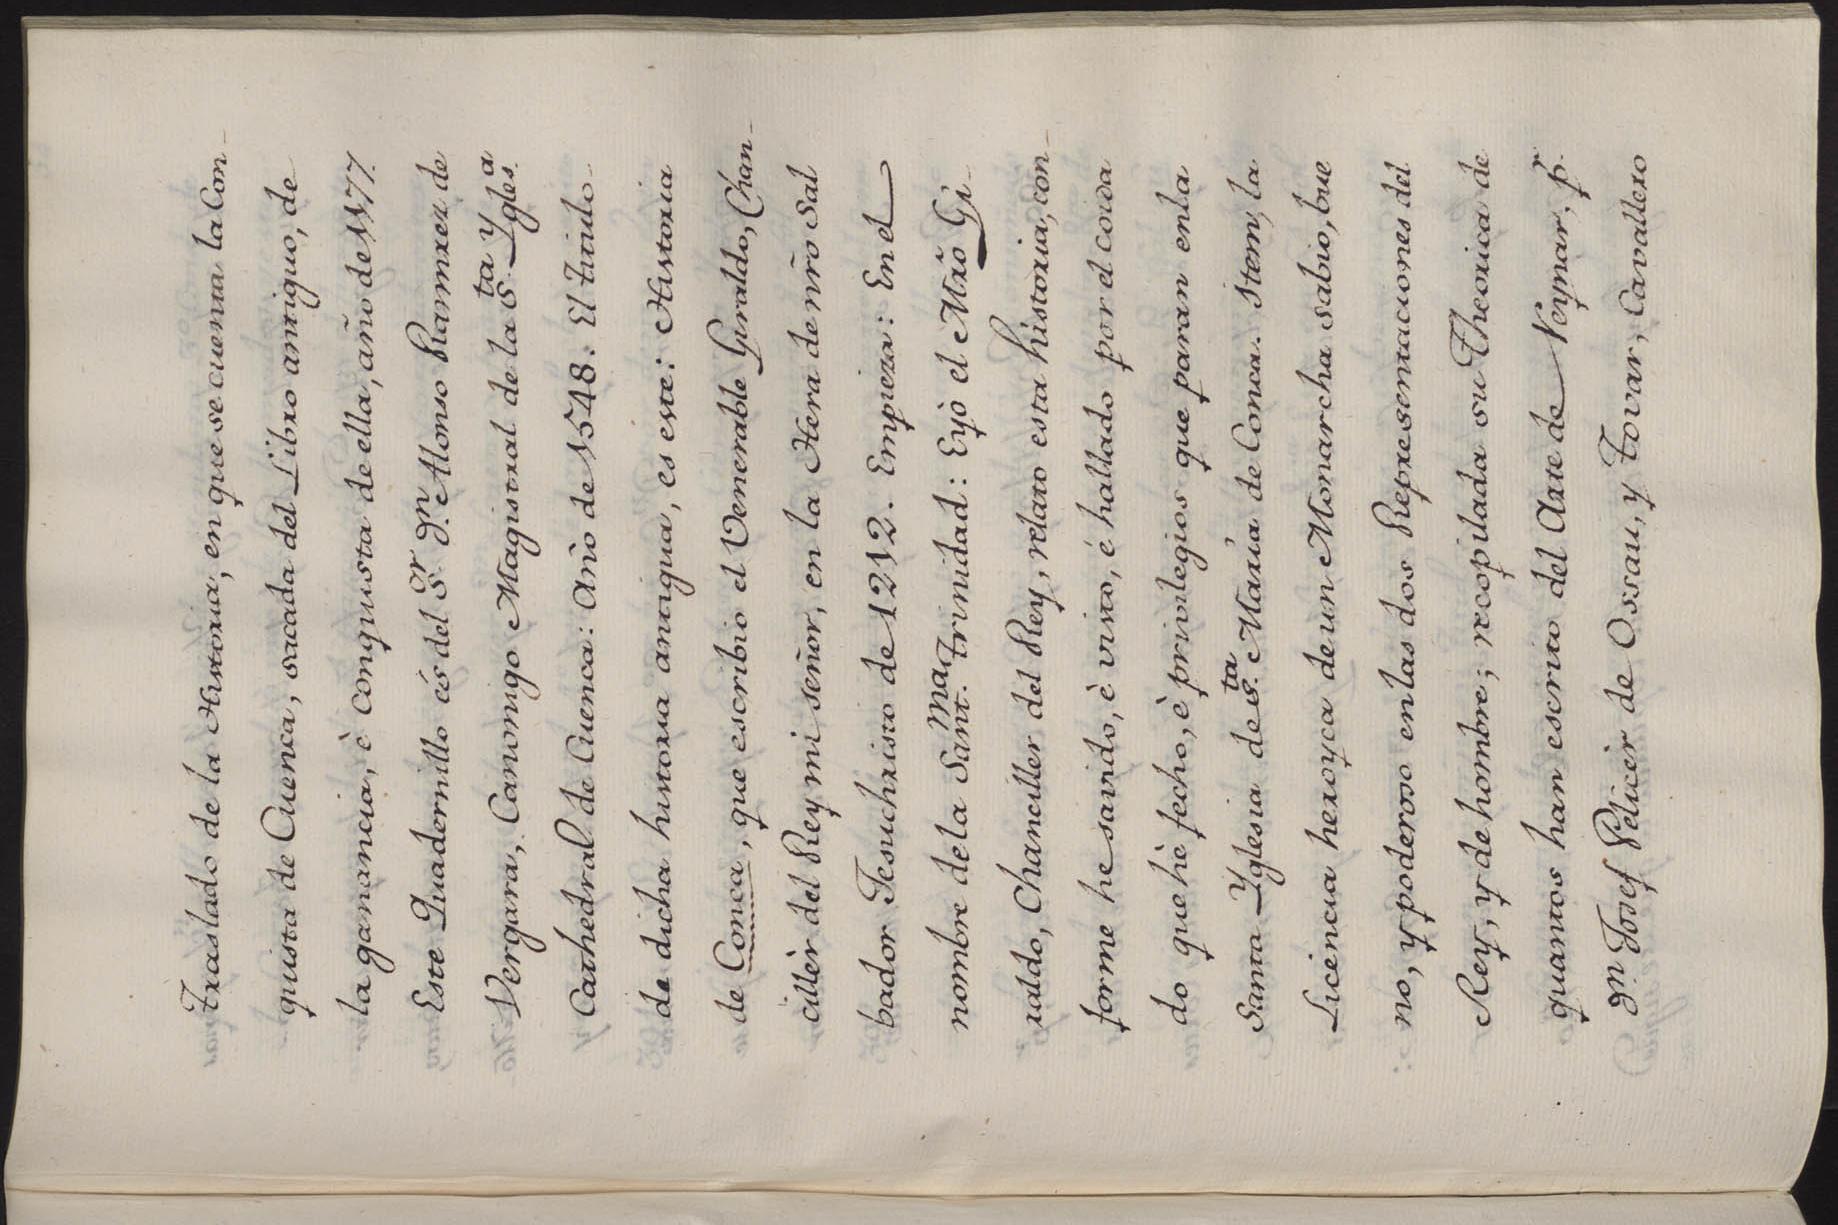 Traslado de la Historia, en que se cuenta la Con-
quista de Cuenca, sacada del Libro antiguo, de
la ganancia, è conquista de ella, año de 1177.
Este Quadernillo és del S.or D.n Alonso Ramirez de
Vergara, Canonigo Magistral de la S.ta Ygles.a
Cathedral de Cuenca: Año de 1548: El titulo
de dicha historia antigua, es este: Historia
de Conca, que escribio el Venerable Giraldo, Chan-
cillèr del Rey mi señor, en la Hera de nr̃o Sal
bador Jesuchristo de 1212. Empieza: En el
nombre de la Sant.ma Trinidad: Eyò el Mr̃o Gi-
raldo, Chanciller del Rey, relato esta historia, con-
forme he savido, è visto, é hallado por el corda
do que hè fecho, è privilegios que paran en la
Santa Yglesia de S.ta María de Conca. Item, la
Licencia heroyca de un Monarcha sabio, bue
no, y poderoso en las dos Representaciones del
Rey, y de hombre; recopilada su Theorica de
quantos han escrito del Arte de Reynar, p.r
D.n Josef Pelicèr de Ossau, y Tovar, Cavallero